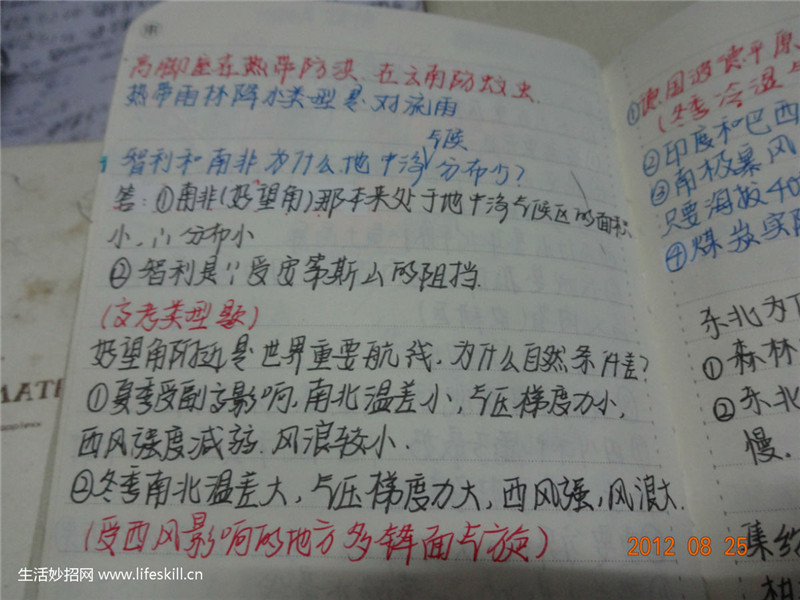 高脚屋在热带防洪.在云南防蚊虫.
热带雨林降水类型是对流雨
气候
智利和南非为什么地中海分布少?
答:①南非(好望角)那本来处于地中海气候区的面积
小,∴分布小
②智利是∵受安第斯山的阻挡.
(高考类型题)
好望角附近是世界重要航线,为什么自然条件差?
①夏季受副高影响,南北温差小,气压梯度力小,
西风强度减弱.风浪较小.
②冬季南北温差大,气压梯度力大,西风强,风浪大.
(受西风影响的地方多锋面气旋)
①德国波德平原
(冬季冷湿
②印度和巴西
③南极暴风
只要海拔40
④煤炭
东北为
①森林
②东北
慢.
集约
2012 08 25
生活妙招网 www.lifeskill.cn